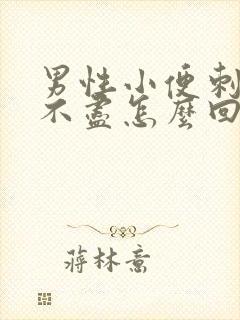 男性小便刺
不盡怎麼回
蔣林意